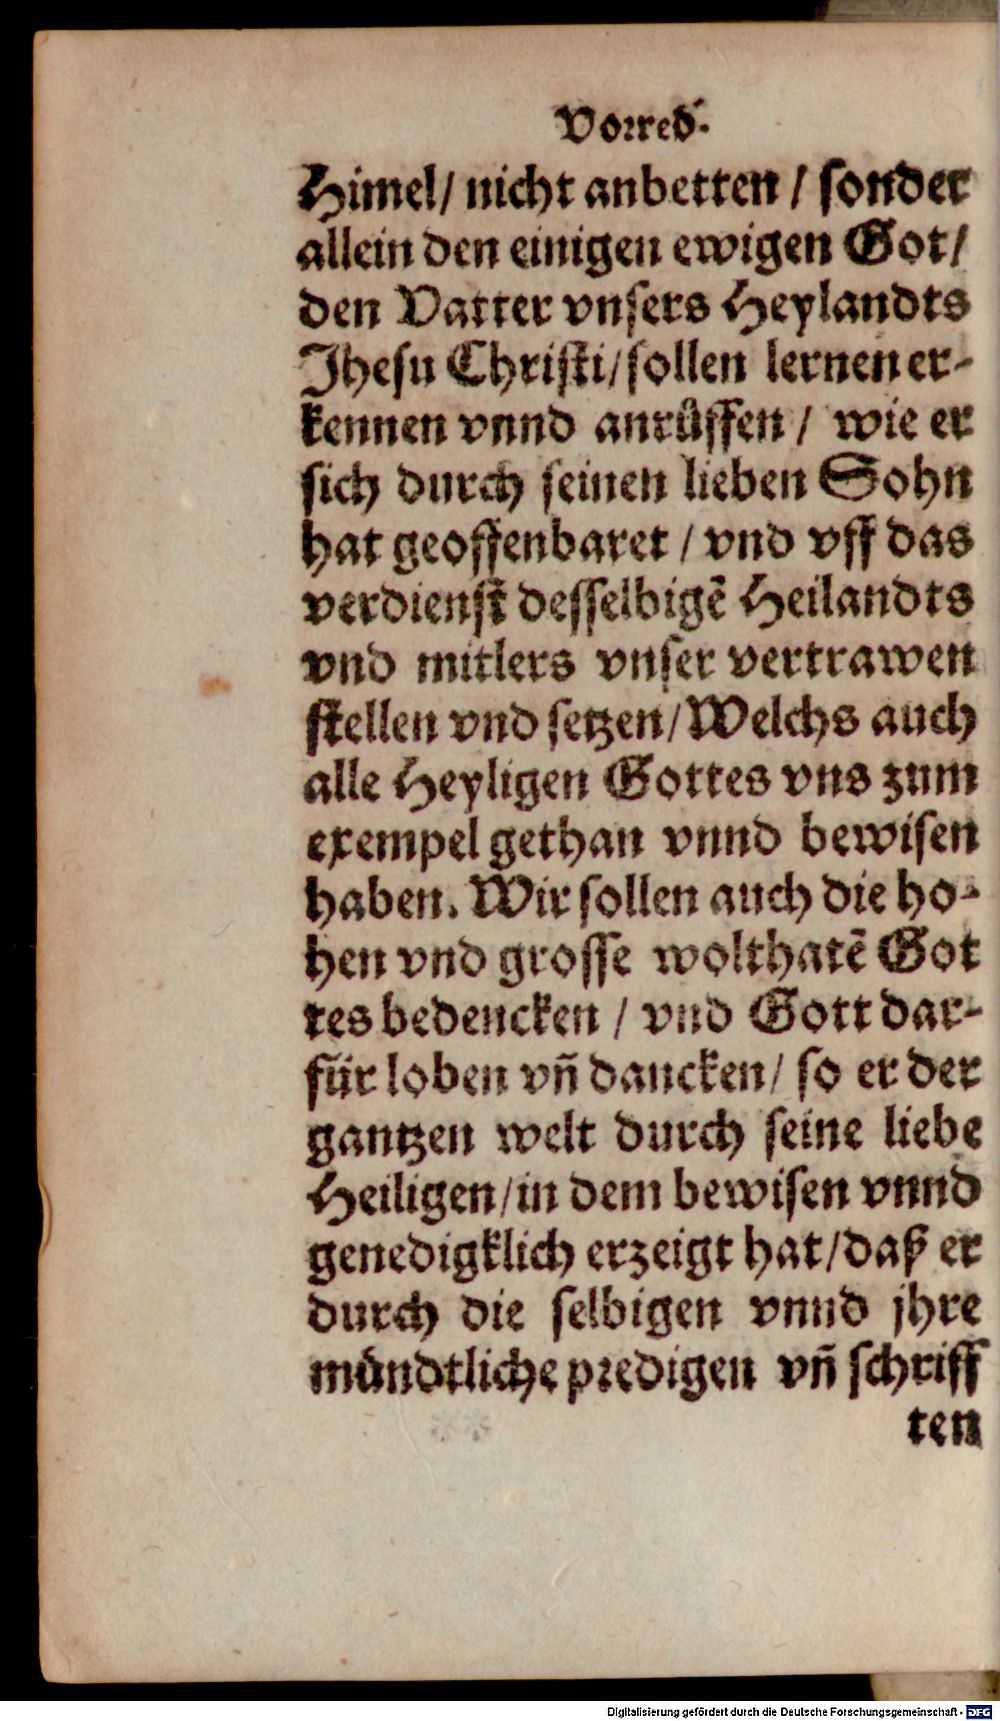 Vorred.
Himel/ nicht anbetten / sonder
allein den einigen ewigen Got/
den Vatter vnsers Heylandts
Jhesu Christi/ sollen lernen er-
kennen vnnd anrůffen / wie er
sich durch seinen lieben Sohn
hat geoffenbaret / vnd vff das
verdienst desselbigẽ Heilandts
vnd mitlers vnser vertrawen
stellen vnd setzen/ Welchs auch
alle Heyligen Gottes vns zum
exempel gethan vnnd bewisen
haben. Wir sollen auch die ho-
hen vnd grosse wolthatẽ Got
tes bedencken / vnd Gott dar-
für loben vñ dancken/ so er der
gantzen welt durch seine liebe
Heiligen/ in dem bewisen vnnd
genedigklich erzeigt hat/ daß er
durch die selbigen vnnd jhre
mündtliche predigen vñ schriff
ten
Digitalisierung gefördert durch die Deutsche Forschungsgemeinschaft - DFG